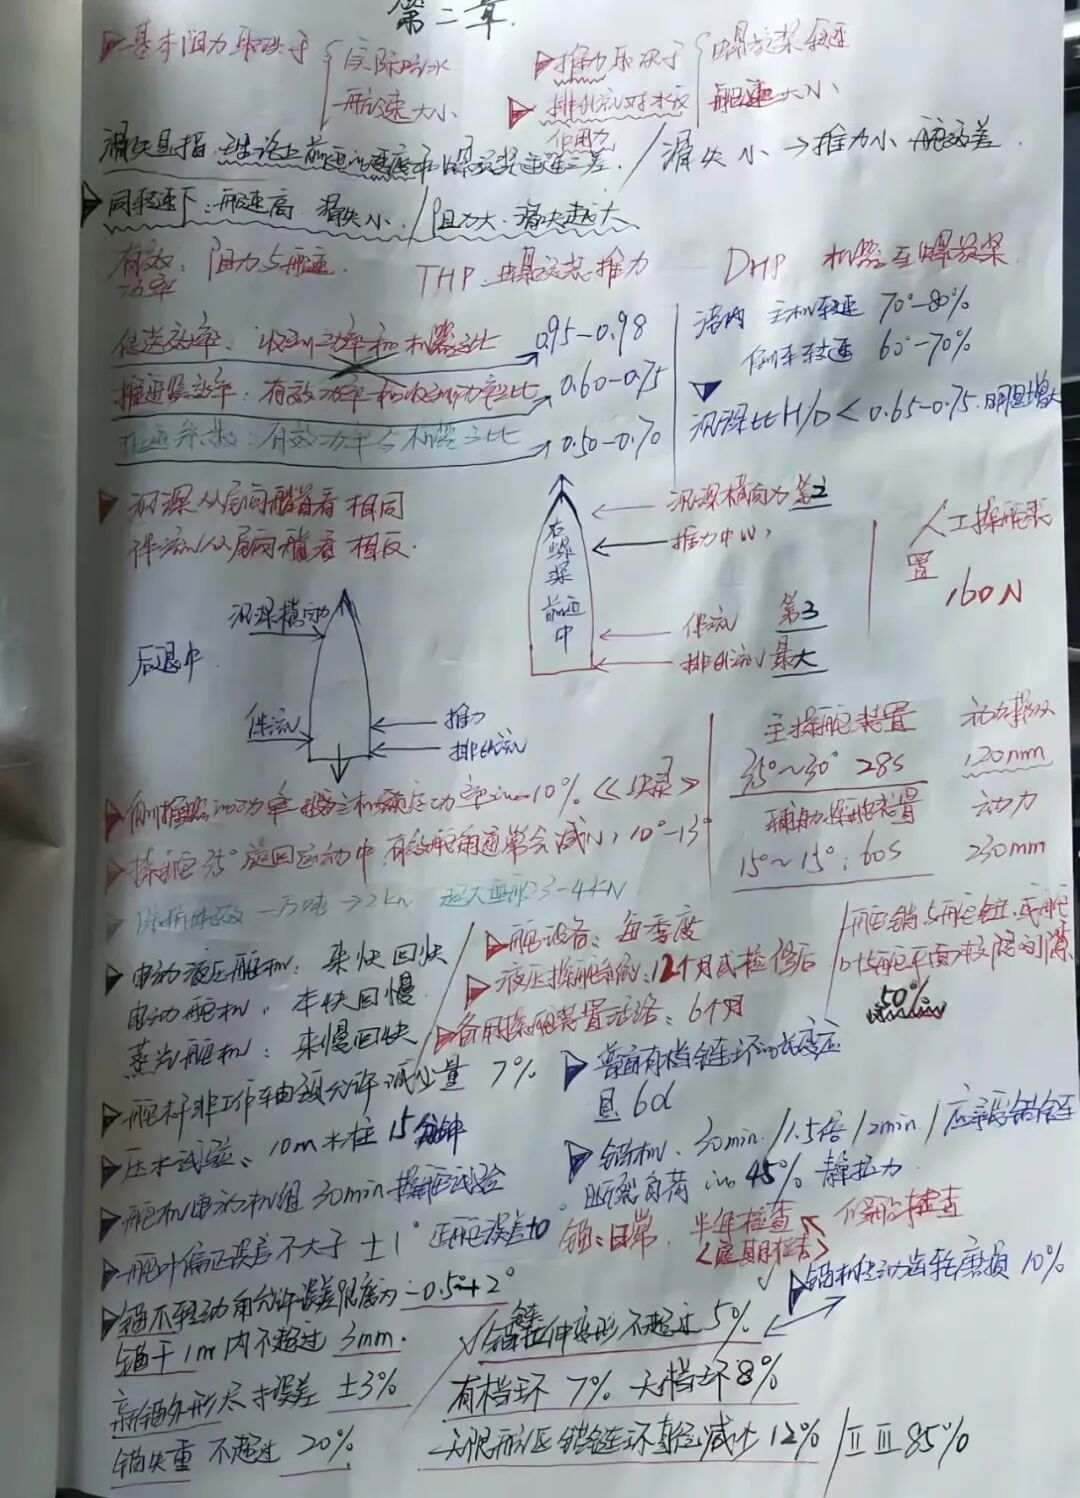 第二章
基本阻力取决于 实际吃水 航速大小
推力取决于 螺旋桨转速 船速大小
排出流对水的作用力
滑失是指 理论上前进的速度和螺旋桨进速之差 / 滑失小→推力小 舵效差
同转速下：船速高 滑失小 / 阻力大、滑失越大
有效功率：阻力与船速
THP 螺旋桨推力
DHP 机器至螺旋桨
传送效率：收到功率和机器之比 → 0.95-0.98
港内 主机转速 70°-80%
推进器效率：有效功率和收到功率之比 → 0.60-0.75
倒车转速 60°-70%
推进系数：有效功率与机器之比 → 0.50-0.70
沉深比H/D<0.65-0.75 明显增大
沉深从尾向船首看 相同
伴流从尾向船首看 相反
右螺桨 前进中
沉深横向力 第2
推力中心
伴流 第3
排出流 最大
人工操舵装置
160N
后退中
沉深横向力
伴流
推力
排出流
主操舵装置 动力
35°~30° 28s 120mm
辅助操舵装置 动力
15°~15°：60s 230mm
侧推器的功率 主机额定功率的10%
操舵35°旋回运动中 有效舵角通常会减小 10°-13°
一万吨→2kn 超大型船3-4kn
电动液压舵机：来快回快
电动舵机：来快回慢
蒸汽舵机：来慢回快
舵设备：每季度
液压操舵系统：12个月或检修后
备用操舵装置活络：6个月
舵销与舵钮 或舵
叶与舵平面 间隙
50%
舵杆非工作轴颈允许减少量 7%
普通有档链环的长度应
是 6d
压水试验：10m水柱 15分钟
锚机：30min / 1.5倍 / 2min / 应承受锚链
断裂负荷的45% 静拉力
舵机电动机组 30min操舵试验
舵叶偏正误差不大于±1°
锚：日常 半年检查
修船检查
锚不转动角允许误差限度为 -0.5°+2°
锚机传动齿轮磨损 10%
锚干1m内不超过 3mm
锚链拉伸变形不超过 5%
新锚外形尺寸误差 ±3%
有档环 7% 无档环 8%
锚失重 不超过 20%
无限航区锚链环直径减少 12% / Ⅱ Ⅲ 85%